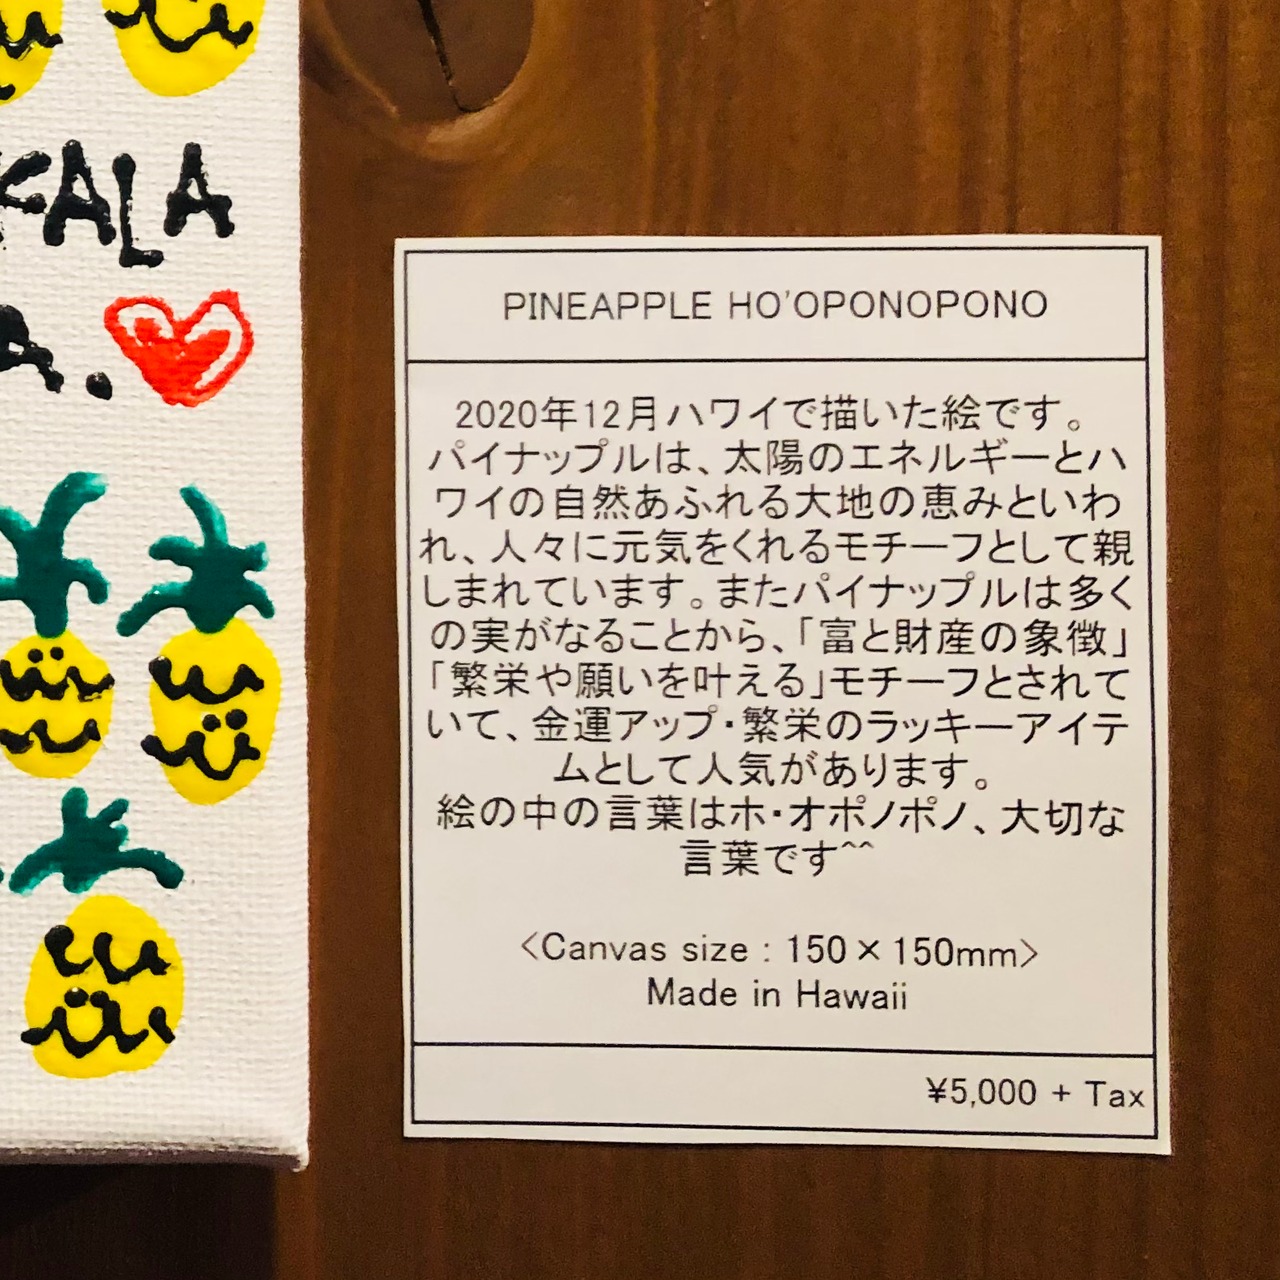 KALA
A.
PINEAPPLE HO'OPONOPONO
2020年12月ハワイで描いた絵です。
パイナップルは、太陽のエネルギーとハ
ワイの自然あふれる大地の恵みといわ
れ、人々に元気をくれるモチーフとして親
しまれています。またパイナップルは多く
の実がなることから、「富と財産の象徴」
「繁栄や願いを叶える」モチーフとされて
いて、金運アップ・繁栄のラッキーアイテ
ムとして人気があります。
絵の中の言葉はホ・オポノポノ、大切な
言葉です^^
<Canvas size : 150×150mm>
Made in Hawaii
¥5,000 + Tax